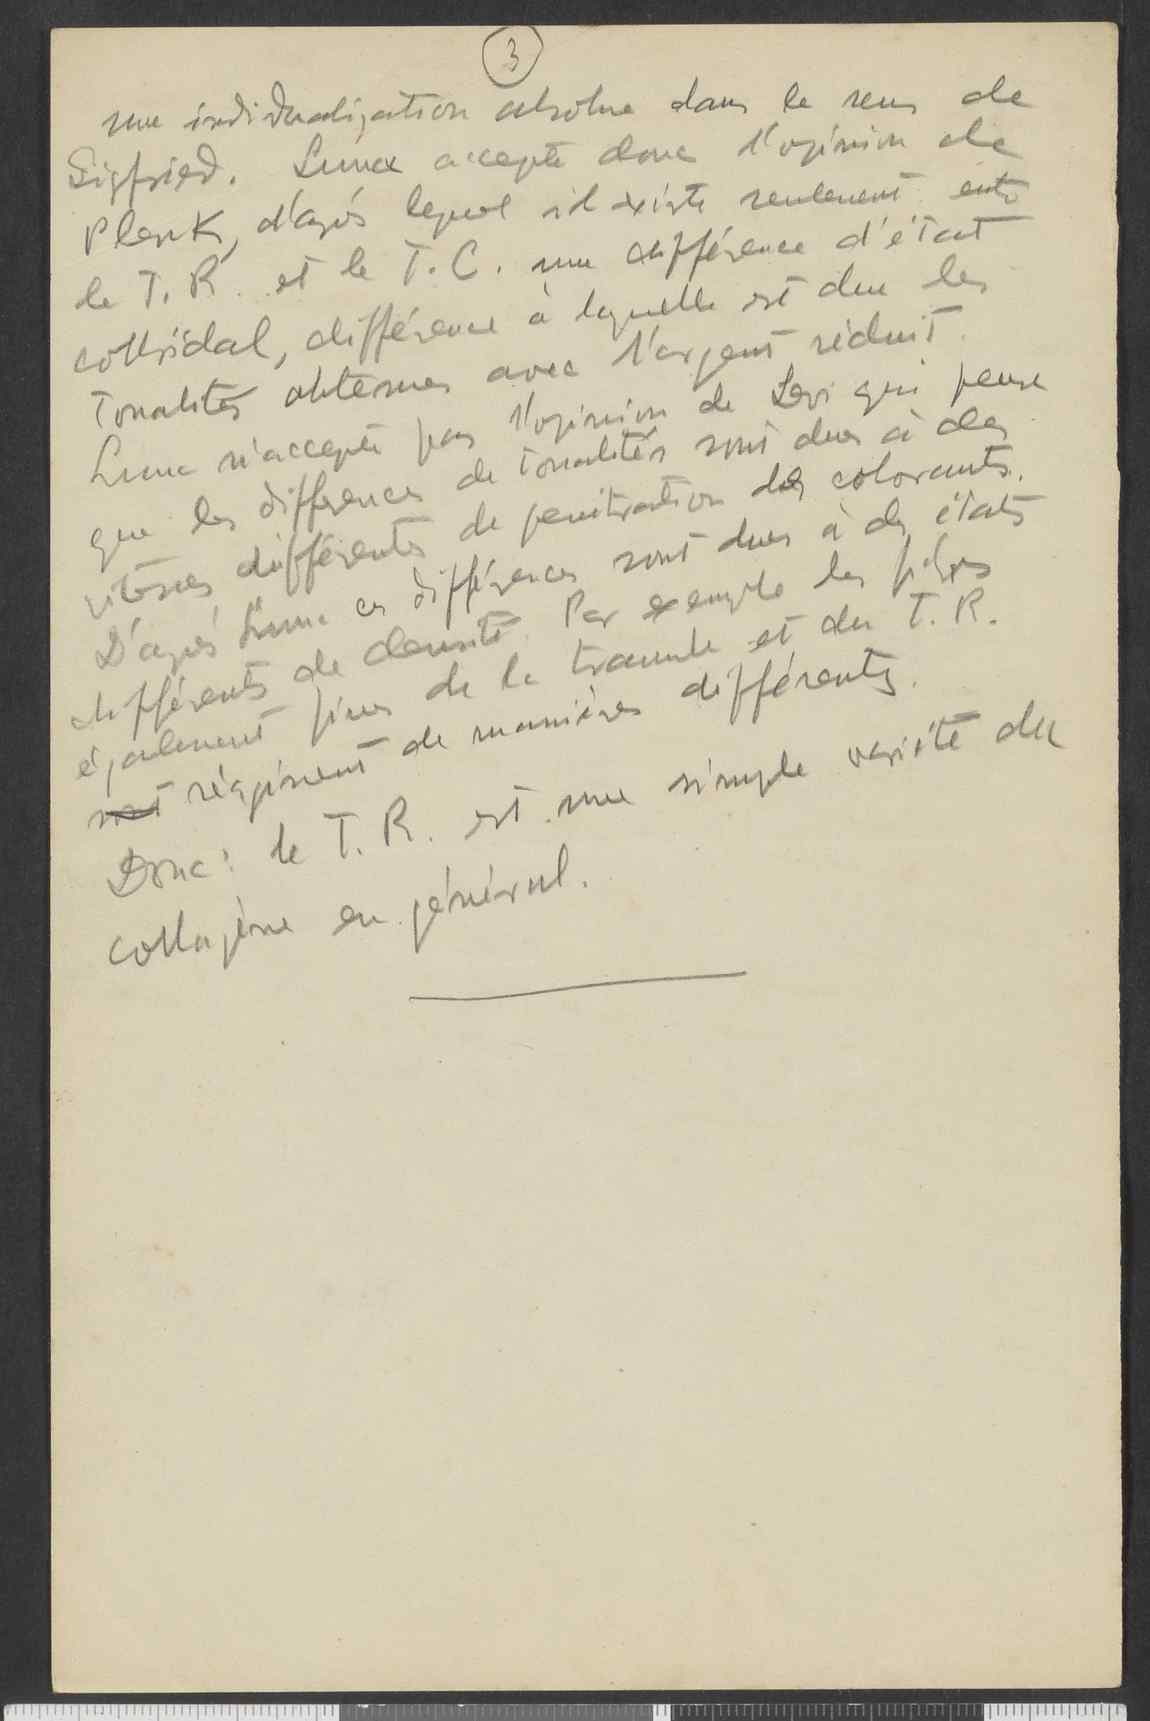 3
une individualisation absolue dans le sens de
Sigfried. Luna accepte donc l'opinion de
Plenk, d'après lequel il existe seulement entre
le T. R. et le T. C. une différence d'état
colloïdal, différence à laquelle est due les
tonalités obtenues avec l'argent réduit.
Luna n'accepte pas l'opinion de Levi qui pense
que les différences de tonalités sont dues à des
vitesses différentes de penetration des colorants.
D'après Luna ces différences sont dues à des états
différents de densité. Par exemple les fibres
également fines de la trame et du T. R.
sont réagissent de manières différentes.
Donc: le T. R. est une simple variété du
collagène en général.